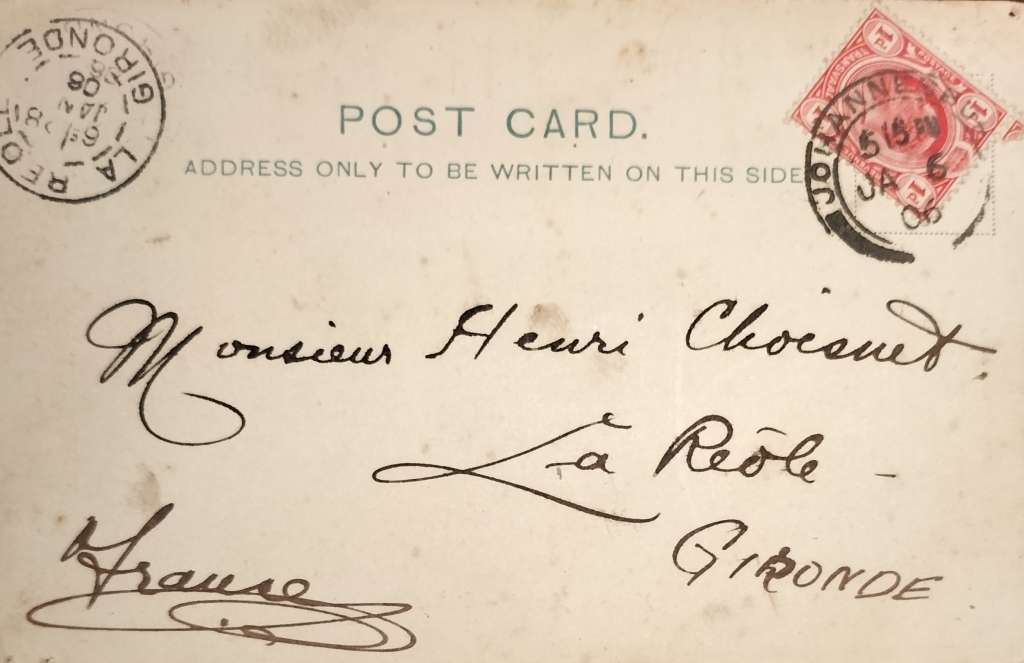 POST CARD.
ADDRESS ONLY TO BE WRITTEN ON THIS SIDE
LA REOLE
GIRONDE
JOHANNESBURG
5 15 PM
JA 6
06
1D
1D
1D
1D
Monsieur Henri Choisnet.
La Réole -
GIRONDE
France